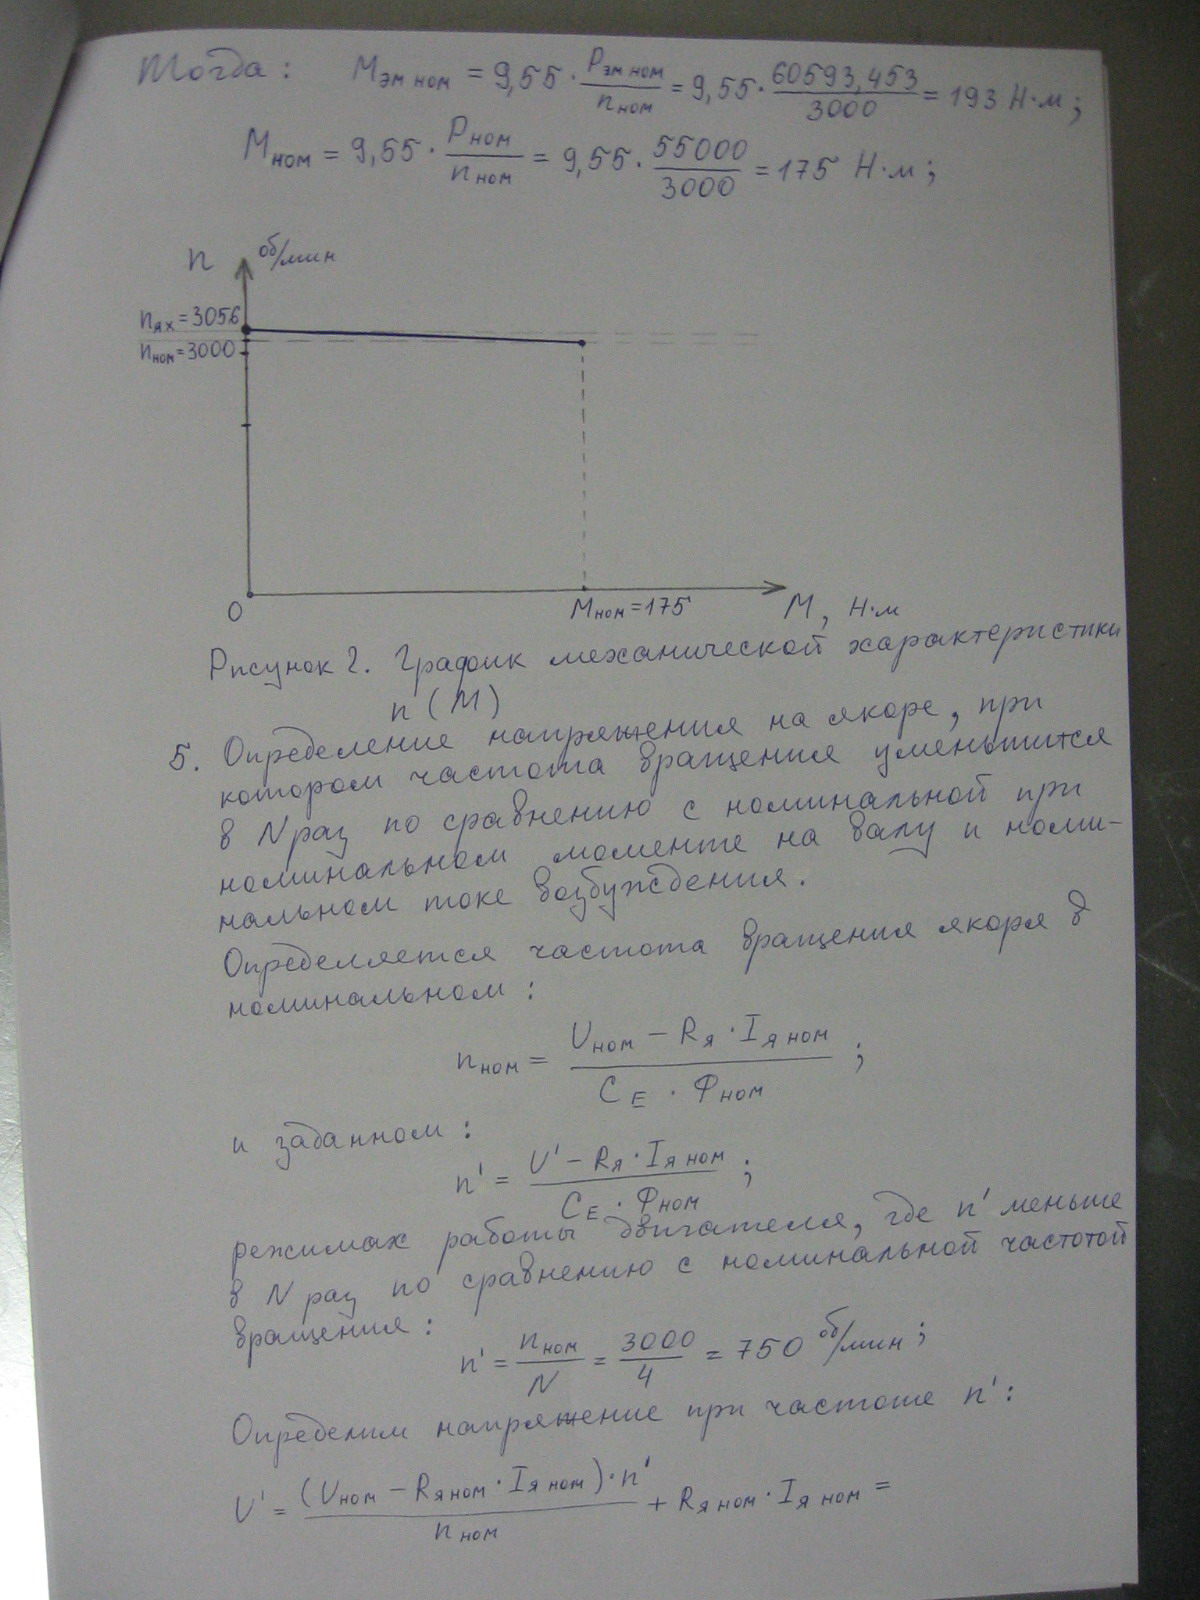 Тогда: Mэм ном = 9,55 · Pэм ном / nном = 9,55 · 60593,453 / 3000 = 193 Н·м;
Mном = 9,55 · Pном / nном = 9,55 · 55000 / 3000 = 175 Н·м;
n об/мин
nях = 3056
nном = 3000
0
Mном = 175
M, Н·м
Рисунок 2. График механической характеристики
n (M)
5. Определение напряжения на якоре, при
котором частота вращения уменьшится
в N раз по сравнению с номинальной при
номинальном моменте на валу и номи-
нальном токе возбуждения.
Определяется частота вращения якоря в
номинальном:
nном = (Uном – Rя · Iя ном) / (CE · Фном);
и заданном:
n' = (U' – Rя · Iя ном) / (CE · Фном);
режимах работы двигателя, где n' меньше
в N раз по сравнению с номинальной частотой
вращения:
n' = nном / N = 3000 / 4 = 750 об/мин;
Определим напряжение при частоте n':
U' = (Uном – Rя ном · Iя ном) · n' / nном + Rя ном · Iя ном =